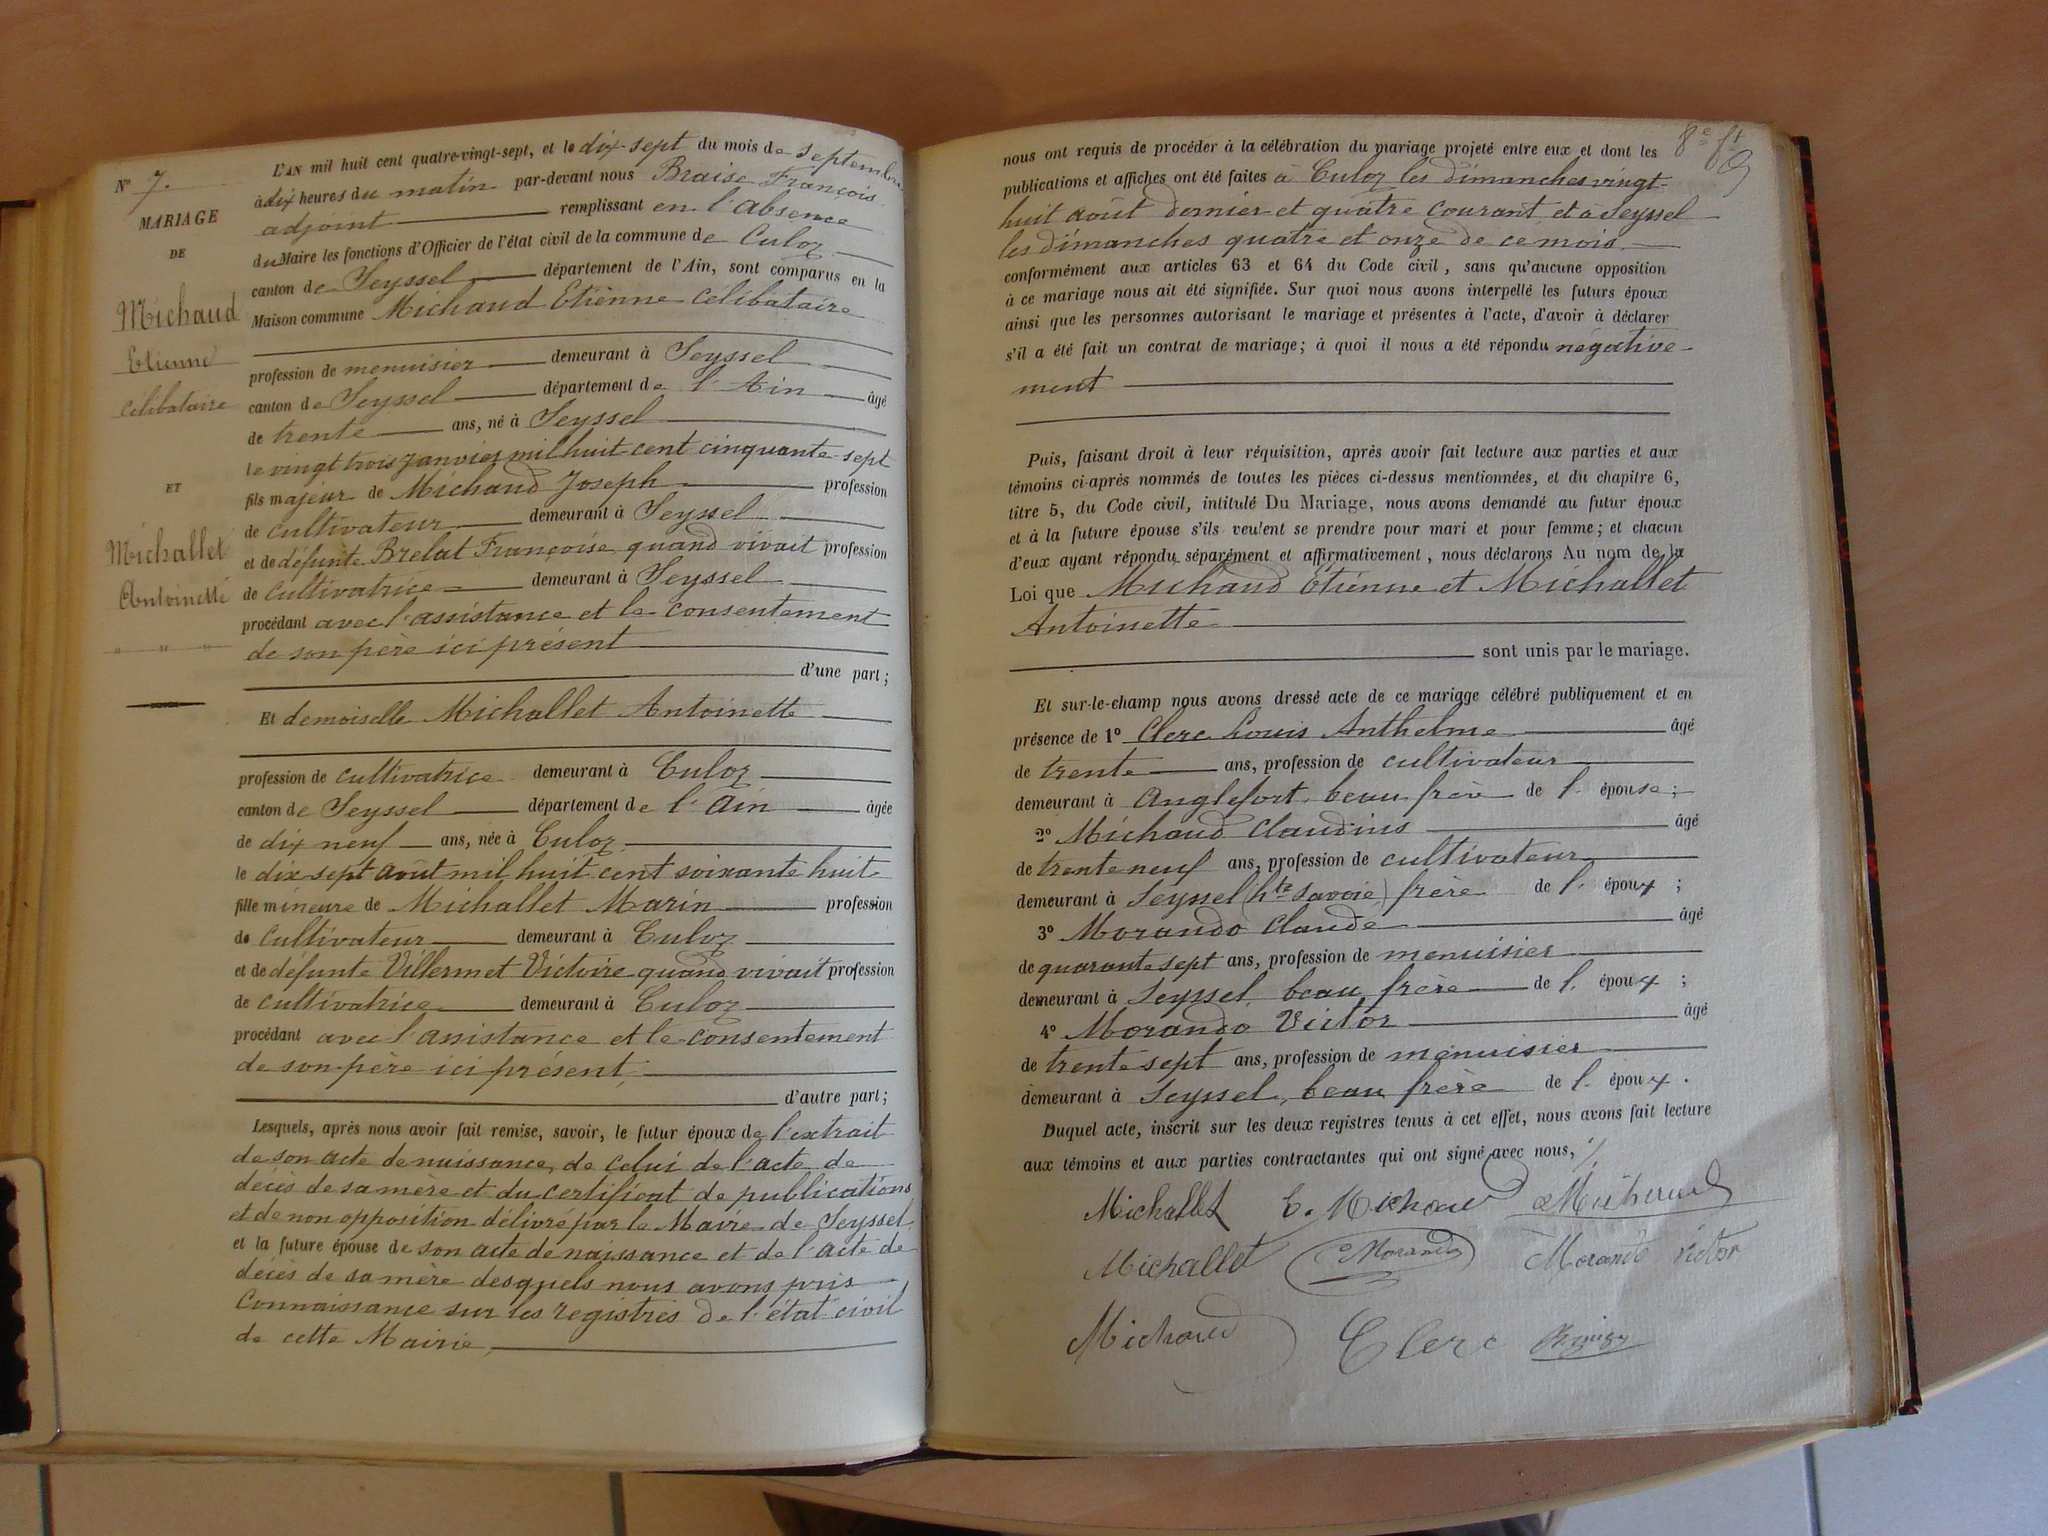 N° 7.
MARIAGE
DE
Michaud
Etienne
célibataire
ET
Michallet
Antoinette
L'AN mil huit cent quatre-vingt-sept, et le dix-sept du mois de septembre
à dix heures du matin par-devant nous Braise François
adjoint remplissant en l'absence
du Maire les fonctions d'Officier de l'état civil de la commune de Culoz
canton de Seyssel département de l'Ain, sont comparus en la
Maison commune Michaud Etienne célibataire
profession de menuisier demeurant à Seyssel
canton de Seyssel département de l'Ain âgé
de trente ans, né à Seyssel
le vingt trois janvier mil huit cent cinquante-sept
fils majeur de Michaud Joseph profession
de cultivateur demeurant à Seyssel
et de défunte Brelat Françoise quand vivait profession
de cultivatrice demeurant à Seyssel
procédant avec l'assistance et le consentement
de son père ici présent
d'une part;
Et demoiselle Michallet Antoinette
profession de cultivatrice demeurant à Culoz
canton de Seyssel département de l'Ain âgée
de dix neuf ans, née à Culoz
le dix sept août mil huit cent soixante huit
fille mineure de Michallet Marin profession
de cultivateur demeurant à Culoz
et de défunte Villermet Victoire quand vivait profession
de cultivatrice demeurant à Culoz
procédant avec l'assistance et le consentement
de son père ici présent,
d'autre part;
Lesquels, après nous avoir fait remise, savoir, le futur époux de l'extrait
de son acte de naissance, de celui de l'acte de
décès de sa mère et du certificat de publications
et de non opposition délivré par le Maire de Seyssel,
et la future épouse de son acte de naissance et de l'acte de
décès de sa mère desquels nous avons pris
connaissance sur les registres de l'état civil
de cette Mairie,
8e ft
nous ont requis de procéder à la célébration du mariage projeté entre eux et dont les
publications et affiches ont été faites à Culoz les dimanches vingt-
huit août dernier et quatre courant et à Seyssel
les dimanches quatre et onze de ce mois
conformément aux articles 63 et 64 du Code civil, sans qu'aucune opposition
à ce mariage nous ait été signifiée. Sur quoi nous avons interpellé les futurs époux
ainsi que les personnes autorisant le mariage et présentes à l'acte, d'avoir à déclarer
s'il a été fait un contrat de mariage; à quoi il nous a été répondu négative-
ment
Puis, faisant droit à leur réquisition, après avoir fait lecture aux parties et aux
témoins ci-après nommés de toutes les pièces ci-dessus mentionnées, et du chapitre 6,
titre 5, du Code civil, intitulé Du Mariage, nous avons demandé au futur époux
et à la future épouse s'ils veulent se prendre pour mari et pour femme; et chacun
d'eux ayant répondu séparément et affirmativement, nous déclarons Au nom de la
Loi que Michaud Etienne et Michallet
Antoinette
sont unis par le mariage.
Et sur-le-champ nous avons dressé acte de ce mariage célébré publiquement et en
présence de 1° Clerc Louis Anthelme âgé
de trente ans, profession de cultivateur
demeurant à Anglefort, beau frère de l'épouse;
2° Michaud Claudius âgé
de trente neuf ans, profession de cultivateur
demeurant à Seyssel (hte Savoie) frère de l'époux;
3° Morando Claude âgé
de quarante sept ans, profession de menuisier
demeurant à Seyssel, beau frère de l'époux;
4° Morando Victor âgé
de trente sept ans, profession de menuisier
demeurant à Seyssel, beau frère de l'époux.
Duquel acte, inscrit sur les deux registres tenus à cet effet, nous avons fait lecture
aux témoins et aux parties contractantes qui ont signé avec nous,
Michallet E. Michaud Michaud
Michallet Morando Morando Victor
Michaud Clerc